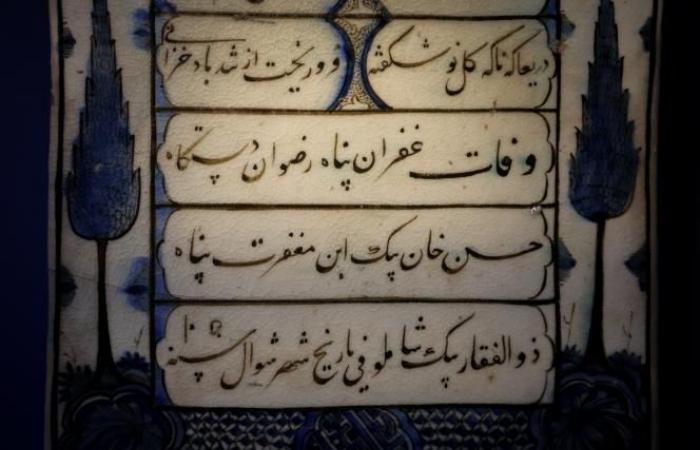 دریغا که ناکه کل نو شکفته فرو ریخت از تند باد خزانی
وفات غفران پناه رضوان دستکاه
حسن خان بیک ابن مغفرت پناه
ذوالفقار بیک شاملو فی تاریخ شهر شوال سنه